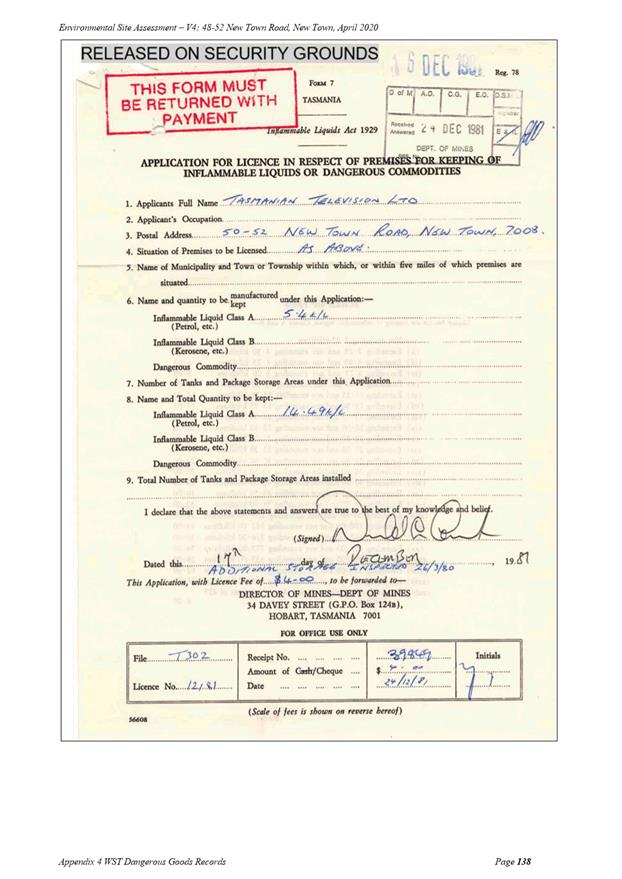 Environmental Site Assessment – V4: 48-52 New Town Road, New Town, April 2020
RELEASED ON SECURITY GROUNDS
16 DEC 1981
Reg. 78
THIS FORM MUST
BE RETURNED WITH
PAYMENT
FORM 7
TASMANIA
D of M A.O. C.G. E.O. D.S.I.
Received
Answered 24 DEC 1981 E &
DEPT. OF MINES
Inflammable Liquids Act 1929
APPLICATION FOR LICENCE IN RESPECT OF PREMISES FOR KEEPING OF
INFLAMMABLE LIQUIDS OR DANGEROUS COMMODITIES
1. Applicants Full Name TASMANIAN TELEVISION LTD
2. Applicant's Occupation
3. Postal Address 50-52 NEW TOWN ROAD, NEW TOWN, 7008.
4. Situation of Premises to be Licensed AS ABOVE.
5. Name of Municipality and Town or Township within which, or within five miles of which premises are
situated
6. Name and quantity to be manufactured kept under this Application:—
Inflammable Liquid Class A 5.4 k/L
(Petrol, etc.)
Inflammable Liquid Class B
(Kerosene, etc.)
Dangerous Commodity
7. Number of Tanks and Package Storage Areas under this Application
8. Name and Total Quantity to be kept:—
Inflammable Liquid Class A 14.49k/L
(Petrol, etc.)
Inflammable Liquid Class B
(Kerosene, etc.)
Dangerous Commodity
9. Total Number of Tanks and Package Storage Areas installed
I declare that the above statements and answers are true to the best of my knowledge and belief.
(Signed)
Dated this 17th day of DECEMBER, 1981
ADDITIONAL STORAGE INSPECTED 26/3/80
This Application, with Licence Fee of $4-00, to be forwarded to—
DIRECTOR OF MINES—DEPT OF MINES
34 DAVEY STREET (G.P.O. Box 124B),
HOBART, TASMANIA 7001
FOR OFFICE USE ONLY
File T302 Receipt No. 39849 Initials
Amount of Cash/Cheque $ 4.00
Licence No. 12/81 Date 24/12/81
(Scale of fees is shown on reverse hereof)
56608
Appendix 4 WST Dangerous Goods Records
Page 138